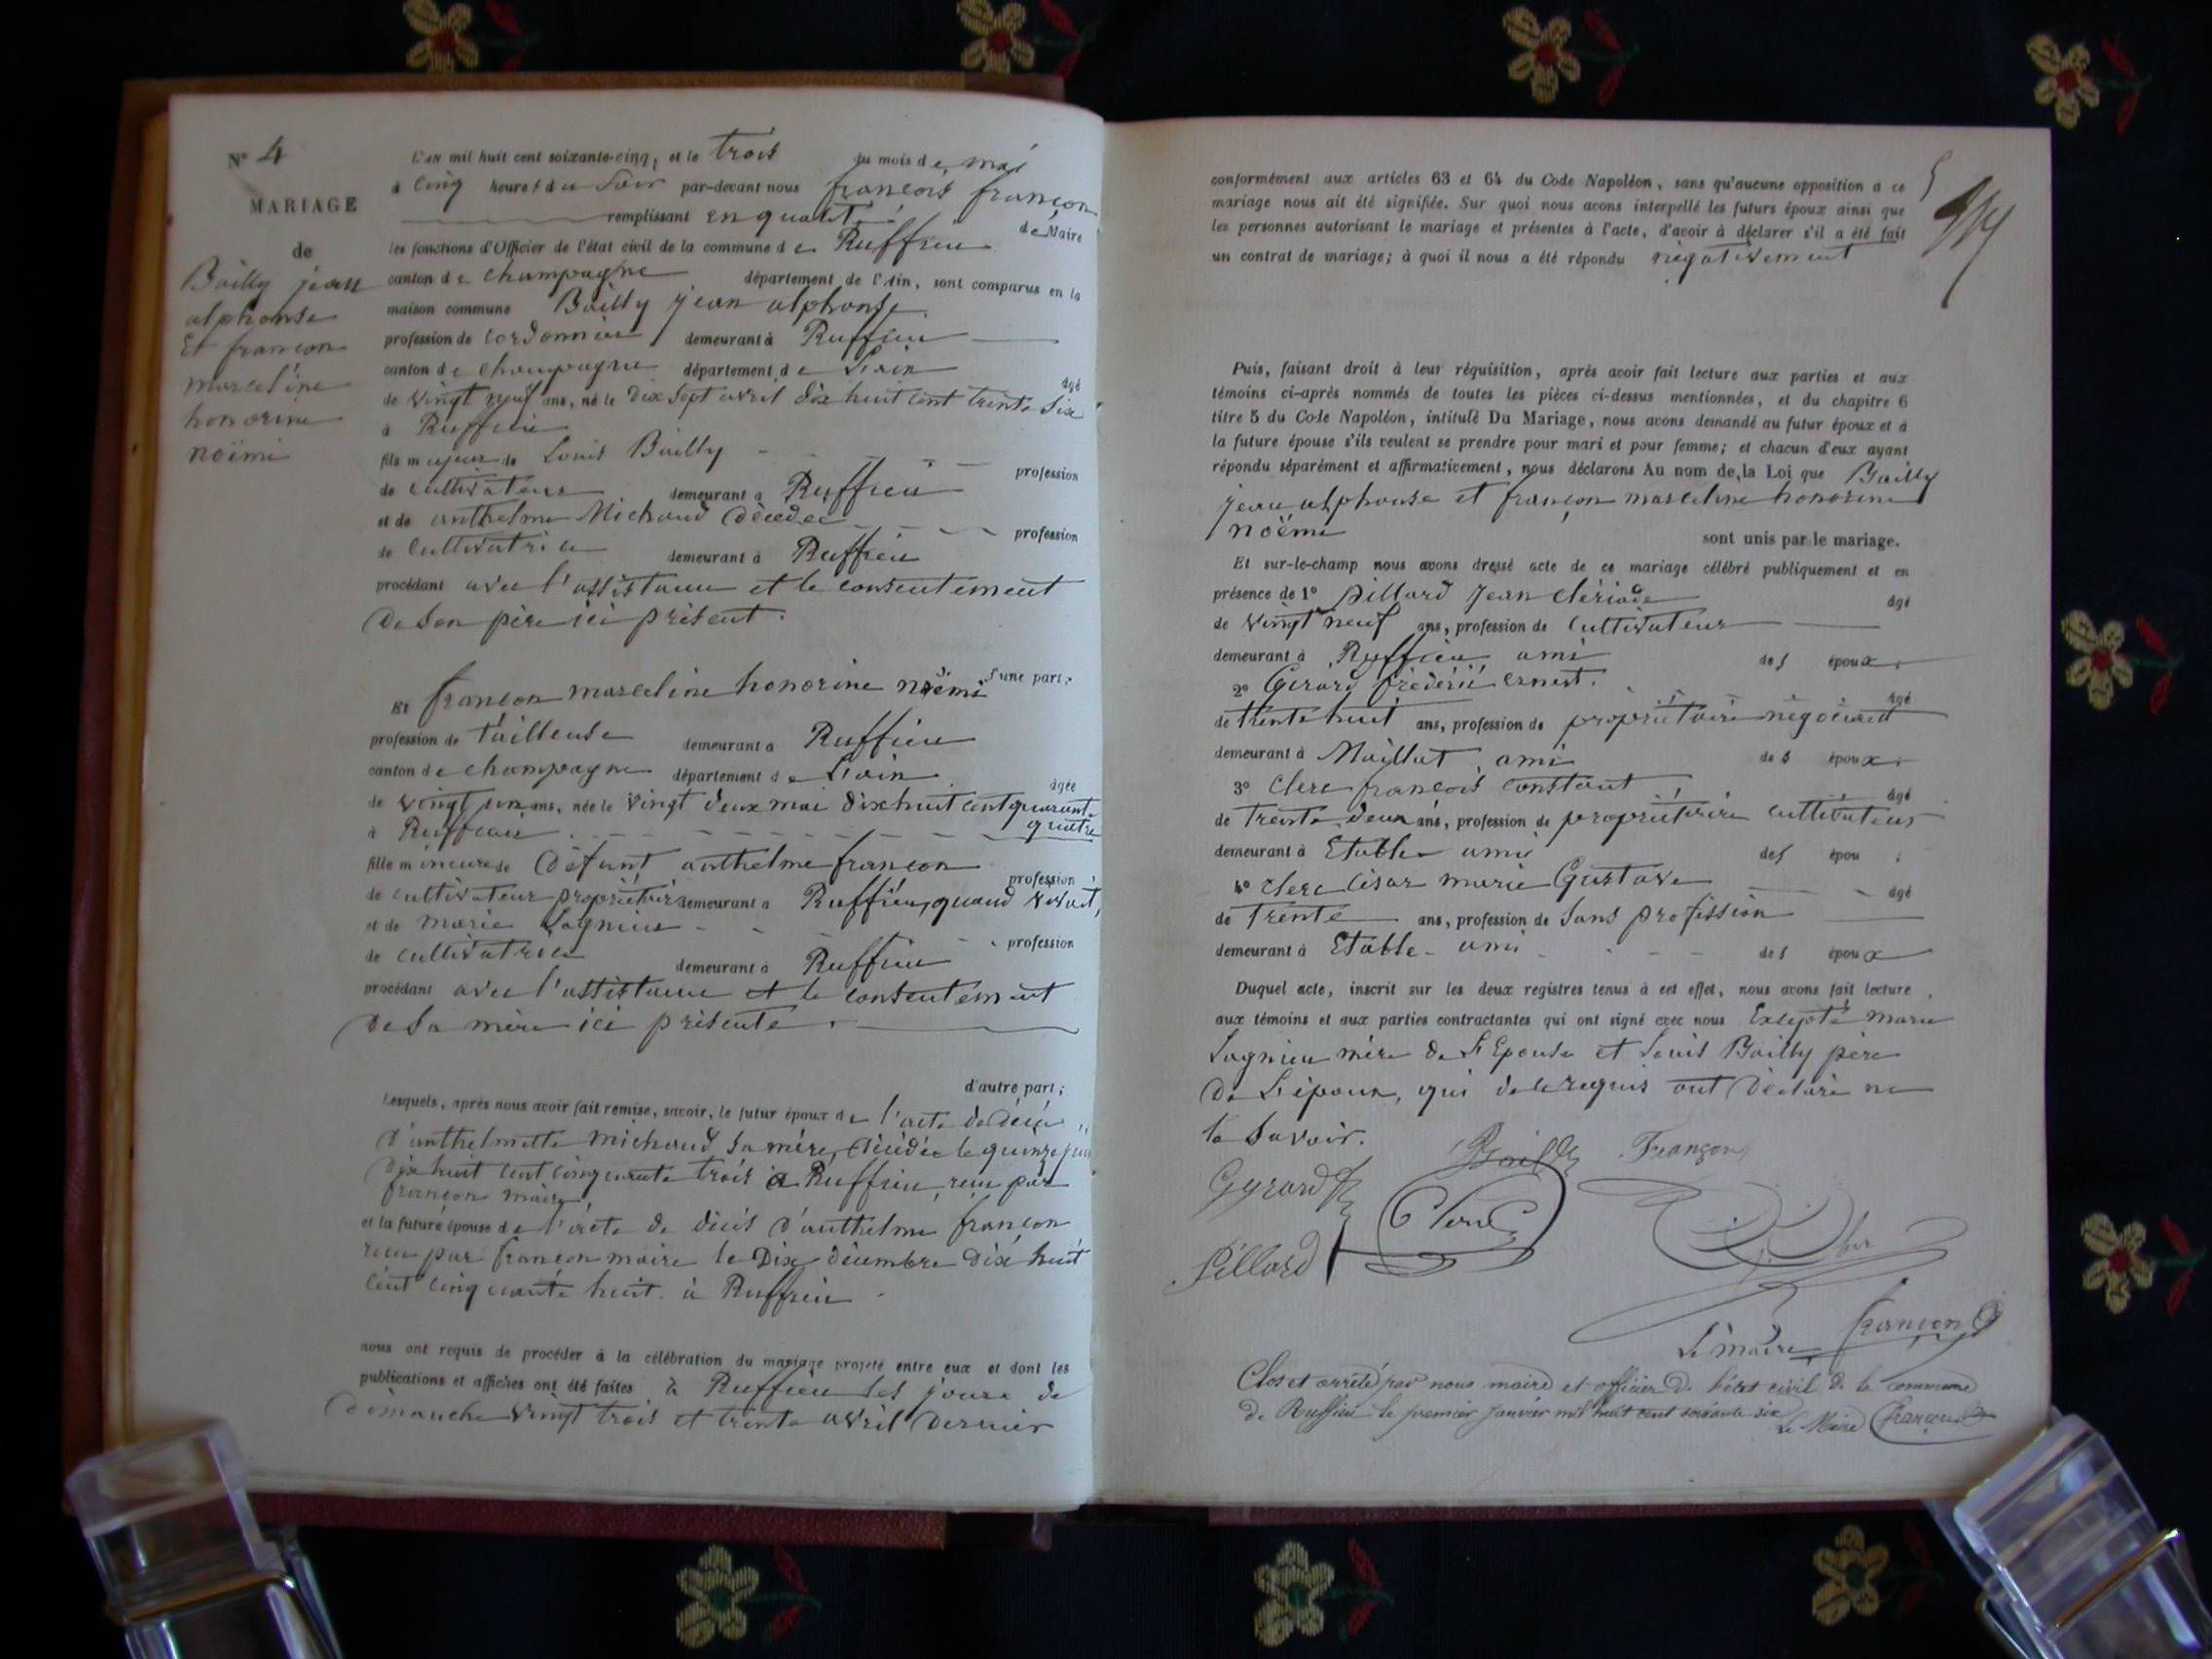 N° 4
MARIAGE
de
Bailly jean
alphonse
Et françon
marceline
honorine
noëmi
L'AN mil huit cent soixante-cinq, et le trois du mois de mai
à cinq heures du soir par-devant nous françois françon
remplissant en qualité de Maire
les fonctions d'Officier de l'état civil de la commune de Ruffieu
canton de champagne département de l'Ain, sont comparus en la
maison commune Bailly jean alphonse
profession de cordonnier demeurant à Ruffieu
canton de champagne département de L'ain âgé
de vingt neuf ans, né le dix sept avril dix huit cent trente six
à Ruffieu
fils majeur de Louis Bailly profession
de cultivateur demeurant à Ruffieu
et de anthelme Michaud décédée profession
de cultivatrice demeurant à Ruffieu
procédant avec l'assistance et le consentement
de son père ici présent.
d'une part;
Et françon marceline honorine noëmi
profession de tailleuse demeurant à Ruffieu
canton de champagne département de L'ain âgée
de vingt un ans, née le vingt deux mai dix huit cent quarante
quatre
à Ruffieu
fille mineure de Défunt anthelme françon profession
de cultivateur propriétaire demeurant à Ruffieu, quand vivait,
et de marie Lagnieu profession
de cultivatrice demeurant à Ruffieu
procédant avec l'assistance et le consentement
de sa mère ici présente.
d'autre part;
Lesquels, après nous avoir fait remise, savoir, le futur époux de l'acte de décès
d'anthelmette michaud sa mère, décédée le quinze
dix huit cent cinquante trois à Ruffieu, reçu par
françon maire
et la future épouse de l'acte de décès d'anthelme françon
reçu par françon maire le Dix décembre dix huit
cent cinquante huit à Ruffieu
nous ont requis de procéder à la célébration du mariage projeté entre eux et dont les
publications et affiches ont été faites à Ruffieu les jours de
dimanche vingt trois et trente avril dernier
conformément aux articles 63 et 64 du Code Napoléon, sans qu'aucune opposition à ce
mariage nous ait été signifiée. Sur quoi nous avons interpellé les futurs époux ainsi que
les personnes autorisant le mariage et présentes à l'acte, d'avoir à déclarer s'il a été fait
un contrat de mariage; à quoi il nous a été répondu négativement
Puis, faisant droit à leur réquisition, après avoir fait lecture aux parties et aux
témoins ci-après nommés de toutes les pièces ci-dessus mentionnées, et du chapitre 6
titre 5 du Code Napoléon, intitulé Du Mariage, nous avons demandé au futur époux et à
la future épouse s'ils veulent se prendre pour mari et pour femme; et chacun d'eux ayant
répondu séparément et affirmativement, nous déclarons Au nom de la Loi que Bailly
jean alphonse et françon marceline honorine
noëmi
sont unis par le mariage.
Et sur-le-champ nous avons dressé acte de ce mariage célébré publiquement et en
présence de 1° Pillard jean clériade âgé
de vingt neuf ans, profession de cultivateur
demeurant à Ruffieu ami des époux.
2° Gerard frédéric ernest. âgé
de trente huit ans, profession de propriétaire négociant
demeurant à Maillat ami des époux.
3° Clerc françois constant âgé
de trente deux ans, profession de propriétaire cultivateur
demeurant à Etable ami des épou ;
4° clerc César marie Gustave âgé
de trente ans, profession de sans profession
demeurant à Etable ami des époux
Duquel acte, inscrit sur les deux registres tenus à cet effet, nous avons fait lecture
aux témoins et aux parties contractantes qui ont signé avec nous Excepté marie
Lagnieu mère de L'Epouse et Louis Bailly père
de L'époux, qui de ce requis ont déclaré ne
le savoir.
Bailly Françon
Gyrard Clerc
Pillard
Le maire françon
Clos et arrêté par nous maire et officier de l'état civil de la commune
de Ruffieu le premier janvier mil huit cent soixante six
Le Maire françon